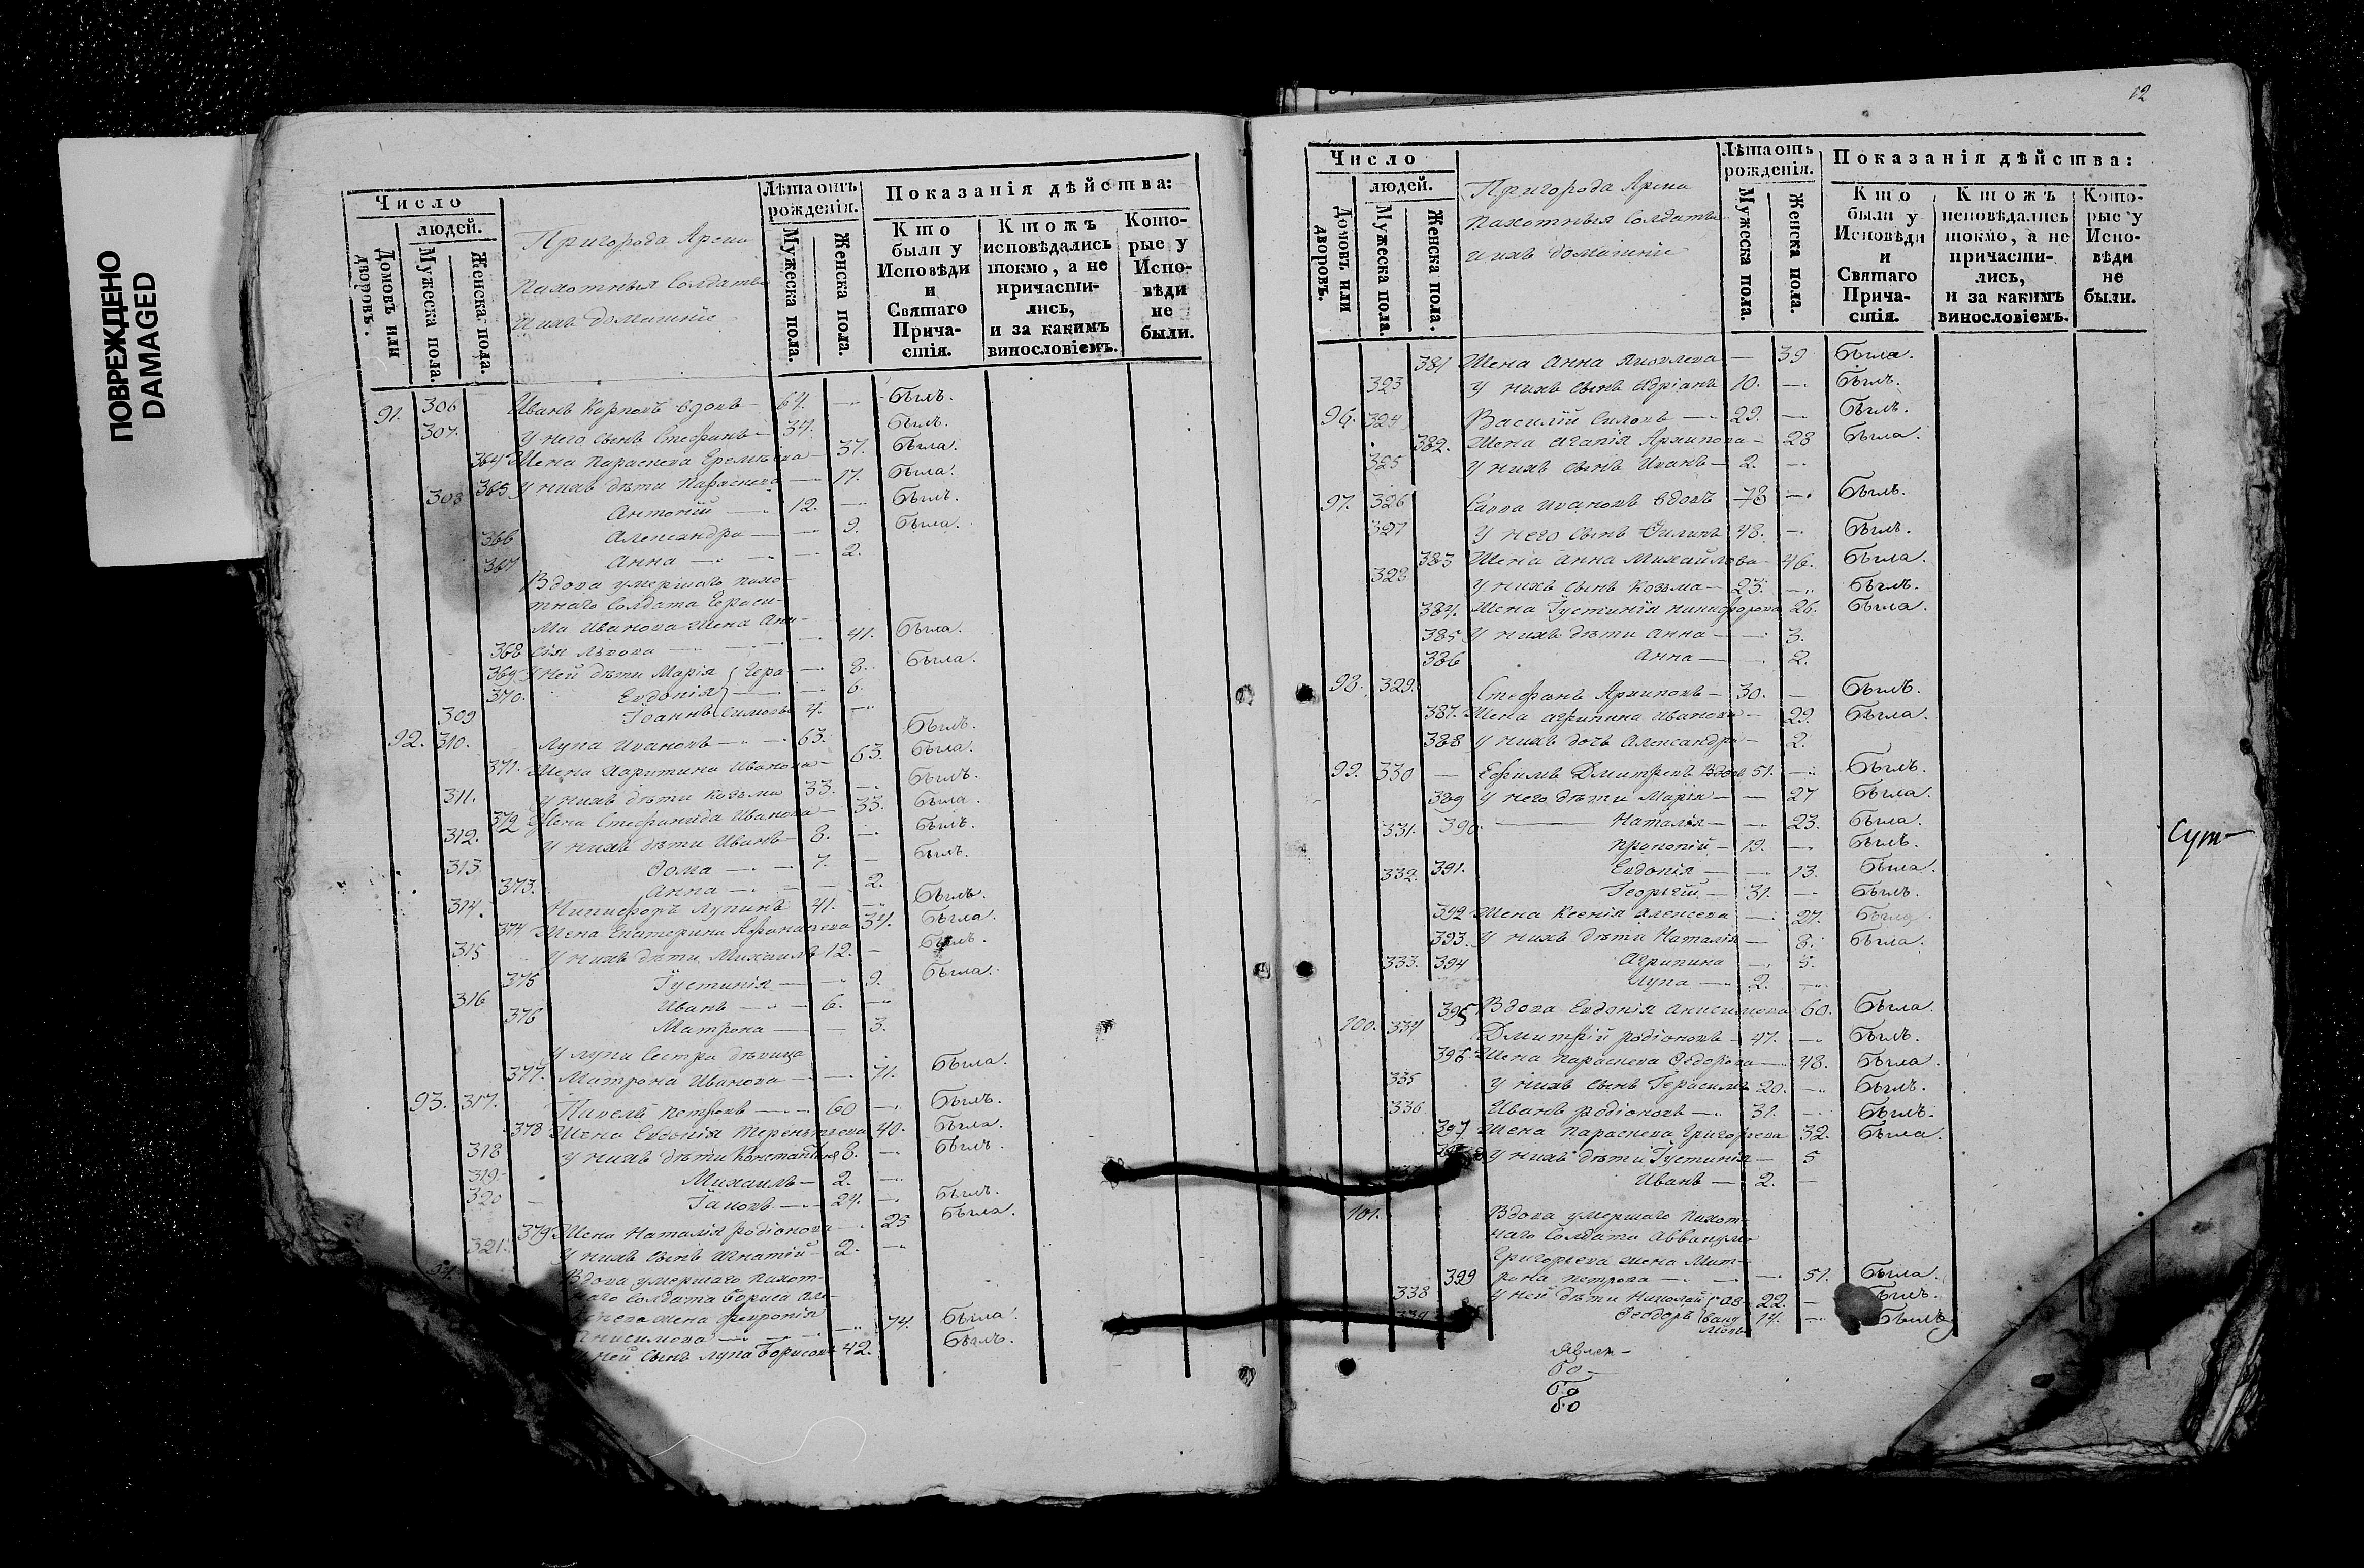 ПОВРЕЖДЕНО
DAMAGED
Число
людей.
Домовъ или дворовъ.
Мужеска пола.
Женска пола.
Пригорода
пахотныя солдаты
и ихъ домашніе
Лѣта отъ рожденія.
Мужеска пола.
Женска пола.
Показанія дѣйства:
Кто были у Исповѣди и Святаго Причастія.
Ктожъ исповѣдались токмо, а не причастились, и за какимъ винословіемъ.
Которые у Исповѣди не были.
91. 306 Иванъ Карповъ вдовъ — 64. — былъ.
307. У него сынъ Стефанъ — 34. былъ.
364 Жена Параскева — 37. была.
365 У нихъ дѣти Параскева — 17. была.
308 Антоній — 12. — былъ.
366 Александра — 9. была.
367 Анна — 2.
Вдова умершаго пахо-
тнаго солдата Гераси-
ма Иванова жена
368 — 41. была.
369 У ней дѣти Марія — 8. была.
370. Евдокія — 6.
309 Іоаннъ 4. —
92. 310. Лупа Ивановъ — 63. былъ.
371. Жена Харитина Иванова — 63. была.
311. У нихъ дѣти Козьма 33. — былъ.
372 Жена Стефанида Иванова — 33. была.
312. У нихъ дѣти Иванъ — 8. — былъ.
313 Ѳома — 7. — былъ.
373. Анна — 2.
314. Никифоръ Лупинъ 41. — былъ.
374 Жена Екатерина 34. была.
315 У нихъ дѣти Михаилъ 12. — былъ.
375 Іустинія — 9. была.
316 Иванъ — 6. —
376 Матрона — 3.
У Лупы сестра дѣвица
377. Матрона Иванова — 71. была.
93. 317. Павелъ Петровъ — 60 — былъ.
378 Жена Евдокія Терентьева 40. была.
318 У нихъ дѣти Константинъ 8. — былъ.
319 Михаилъ — 2. —
320 — Іаковъ — 24. — былъ.
379 Жена Наталія Родіонова — 25 была.
321. У нихъ сынъ Игнатій — 2. —
Вдова умершаго пахот-
наго солдата Бориса
жена Февронія
Анисимова — 74. была.
У ней сынъ Лупа Борисовъ 42. былъ.
12
Число
людей.
Домовъ или дворовъ.
Мужеска пола.
Женска пола.
Пригорода
пахотныя солдаты
и ихъ домашніе
Лѣта отъ рожденія.
Мужеска пола.
Женска пола.
Показанія дѣйства:
Кто были у Исповѣди и Святаго Причастія.
Ктожъ исповѣдались токмо, а не причастились, и за какимъ винословіемъ.
Которые у Исповѣди не были.
381 Жена Анна Яковлева — 39 была.
323 У нихъ сынъ Адріанъ 10. — былъ.
96. 324 Василій Силовъ — 29. — былъ.
382. Жена Агапія Архипова — 28 была.
325 У нихъ сынъ Иванъ — 2. —
97. 326 Савва Ивановъ вдовъ — 78 — былъ.
327 У него сынъ Филипъ 48. — былъ.
383 Жена Анна Михайлова — 46. была.
328 У нихъ сынъ Козьма — 23. — былъ.
384. Жена Іустинія Никифорова 26. была.
385 У нихъ дѣти Анна — 3.
386 Анна — 2.
98. 329. Стефанъ Архиповъ — 30. — былъ.
387. Жена Агрипина Иванова — 29. была.
388 У нихъ дочь Александра — 2.
99. 330 — Ефимъ Дмитріевъ вдовъ 51. — былъ.
389 У него дѣти Марія — 27 была.
390 Наталія — 23. была.
331. Прокопій — 19. — былъ.
391. Евдокія — 13. была.
332. Георгій — 31. — былъ.
392 Жена Ксенія Алексеева — 27. была
393. У нихъ дѣти Наталія — 8. была.
394 Агрипина — 5.
333. Лупа — 2. —
395 Вдова Евдокія Анисимова 60. была.
100. 334 Дмитрій Родіоновъ — 47. — былъ.
396 Жена Параскева Ѳедорова — 48. была.
335 У нихъ сынъ Герасимъ 20. — былъ.
336 Иванъ Родіоновъ — 31. — былъ.
397 Жена Параскева Григорьева 32. была.
У нихъ дѣти Іустинія — 5
Иванъ — 2. —
101. Вдова умершаго пахот-
наго солдата Аввакума
Григорьева жена Мат-
399 рона Петрова — 51. была.
338 У ней дѣти Николай 22. — былъ.
339 Ѳеодоръ 14. — былъ